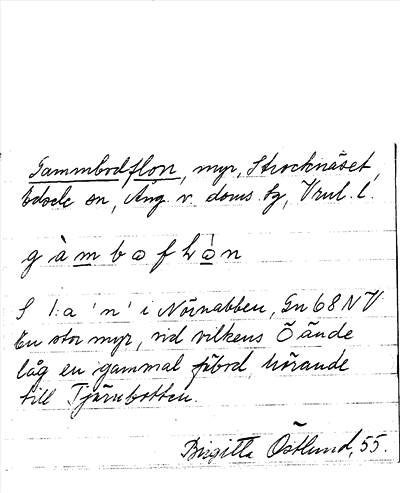 Gammbodflon, myr, Strocknäset,
Edsele sn, Ång. v. doms. bg, Vnrl. l.
g à m b o f l ò n
S 1:a 'n' i Nörvabben, Gn 68 NV
En stor myr, vid vilkens Ö ände
låg en gammal fäbod, hörande
till Tjärnbotten.
Birgitta Östlund, 55.